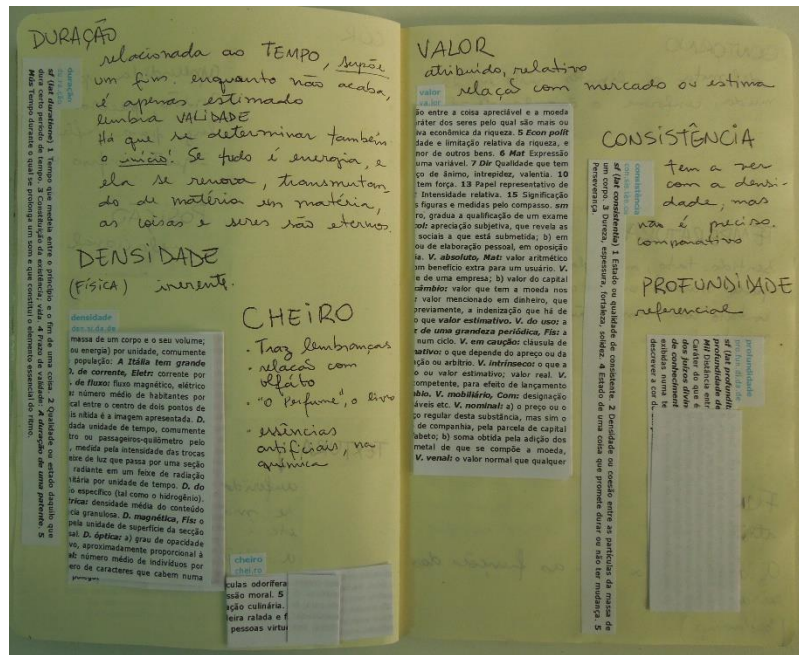 DURAÇÃO
relacionada ao TEMPO, supõe
um fim. enquanto não acaba,
é apenas estimado
lembra VALIDADE
Há que se determinar também
o início! Se tudo é energia, e
ela se renova, transmutan
do de matéria em matéria,
as coisas e seres são eternos.
duração
du.ra.ção
sf (lat duratione) 1 Tempo que medeia entre o princípio e o fim de uma coisa. 2 Qualidade ou estado daquilo que
dura certo período de tempo. 3 Constituição da existência; vida. 4 Prazo de validade: A duração de uma patente. 5
Mús Tempo durante o qual se prolonga um som e que constitui o elemento essencial do ritmo.
DENSIDADE
(FÍSICA) inerente.
densidade
den.si.da.de
massa de um corpo e o seu volume;
ou energia) por unidade, comumente
população: A Itália tem grande
D. de corrente, Eletr: corrente por
de fluxo: fluxo magnético, elétrico
número médio de habitantes por
cal entre o centro de dois pontos de
is nítida é a imagem apresentada. D.
dada unidade de tempo, comumente
tro ou passageiros-quilômetro pelo
, medida pela intensidade das trocas
feixe de luz que passa por uma seção
radiante em um feixe de radiação
itária por unidade de tempo. D. do
o específico (tal como o hidrogênio).
trica: densidade média do conteúdo
cia granulosa. D. magnética, Fís: o
pela unidade de superfície da secção
sal. D. óptica: a) grau de opacidade
vo, aproximadamente proporcional à
número médio de indivíduos por
ero de caracteres que cabem numa
CHEIRO
- Traz lembranças
- relação com
olfato
- "O Perfume", o livro
- essências
artificiais, na
química
cheiro
chei.ro
culas odorífera
ssão moral. 5
ação culinária.
leira ralada e f
pessoas virtu
VALOR
atribuído, relativo
relação com mercado ou estima
valor
va.lor
ão entre a coisa apreciável e a moeda
ráter dos seres pelo qual são mais ou
iva econômica da riqueza. 5 Econ polít
dade e limitação relativa da riqueza, e
nor de outros bens. 6 Mat Expressão
uma variável. 7 Dir Qualidade que tem
ço de ânimo, intrepidez, valentia. 10
tem força. 13 Papel representativo de
Intensidade relativa. 15 Significação
s figuras e medidas pelo compasso. sm
ro, gradua a qualificação de um exame
col: apreciação subjetiva, que revela as
sociais a que está submetida; b) em
ou de elaboração pessoal, em oposição
ia. V. absoluto, Mat: valor aritmético
m benefício extra para um usuário. V.
e de uma empresa; b) valor do capital
câmbio: valor que tem a moeda nos
valor mencionado em dinheiro, que
previamente, a indenização que há de
o que valor estimativo. V. do uso: a
r de uma grandeza periódica, Fís: a
num ciclo. V. em caução: cláusula de
mativo: o que depende do apreço ou da
ção ou arbítrio. V. intrínseco: o que a
o ou valor estimativo; valor real. V.
ompetente, para efeito de lançamento
bio. V. mobiliário, Com: designação
áveis etc. V. nominal: a) o preço ou o
o regular desta substância, mas sim o
de companhia, pela parcela de capital
abeto; b) soma obtida pela adição dos
metal de que se compõe a moeda,
V. venal: o valor normal que qualquer
CONSISTÊNCIA
tem a ver
com a densi
dade, mas
não é preciso.
comparativo
consistência
con.sis.tên.cia
sf (lat consistentia) 1 Estado ou qualidade de consistente. 2 Densidade ou coesão entre as partículas da massa de
um corpo. 3 Dureza, espessura, fortaleza, solidez. 4 Estado de uma coisa que promete durar ou não ter mudança. 5
Perseverança.
PROFUNDIDADE
referencial
profundidade
pro.fun.di.da.de
sf (lat profundit
profundidade de
Mil Distância entr
Caráter do que é
dos juízos divin
de conheciment
exibidas numa te
descrever a cor d